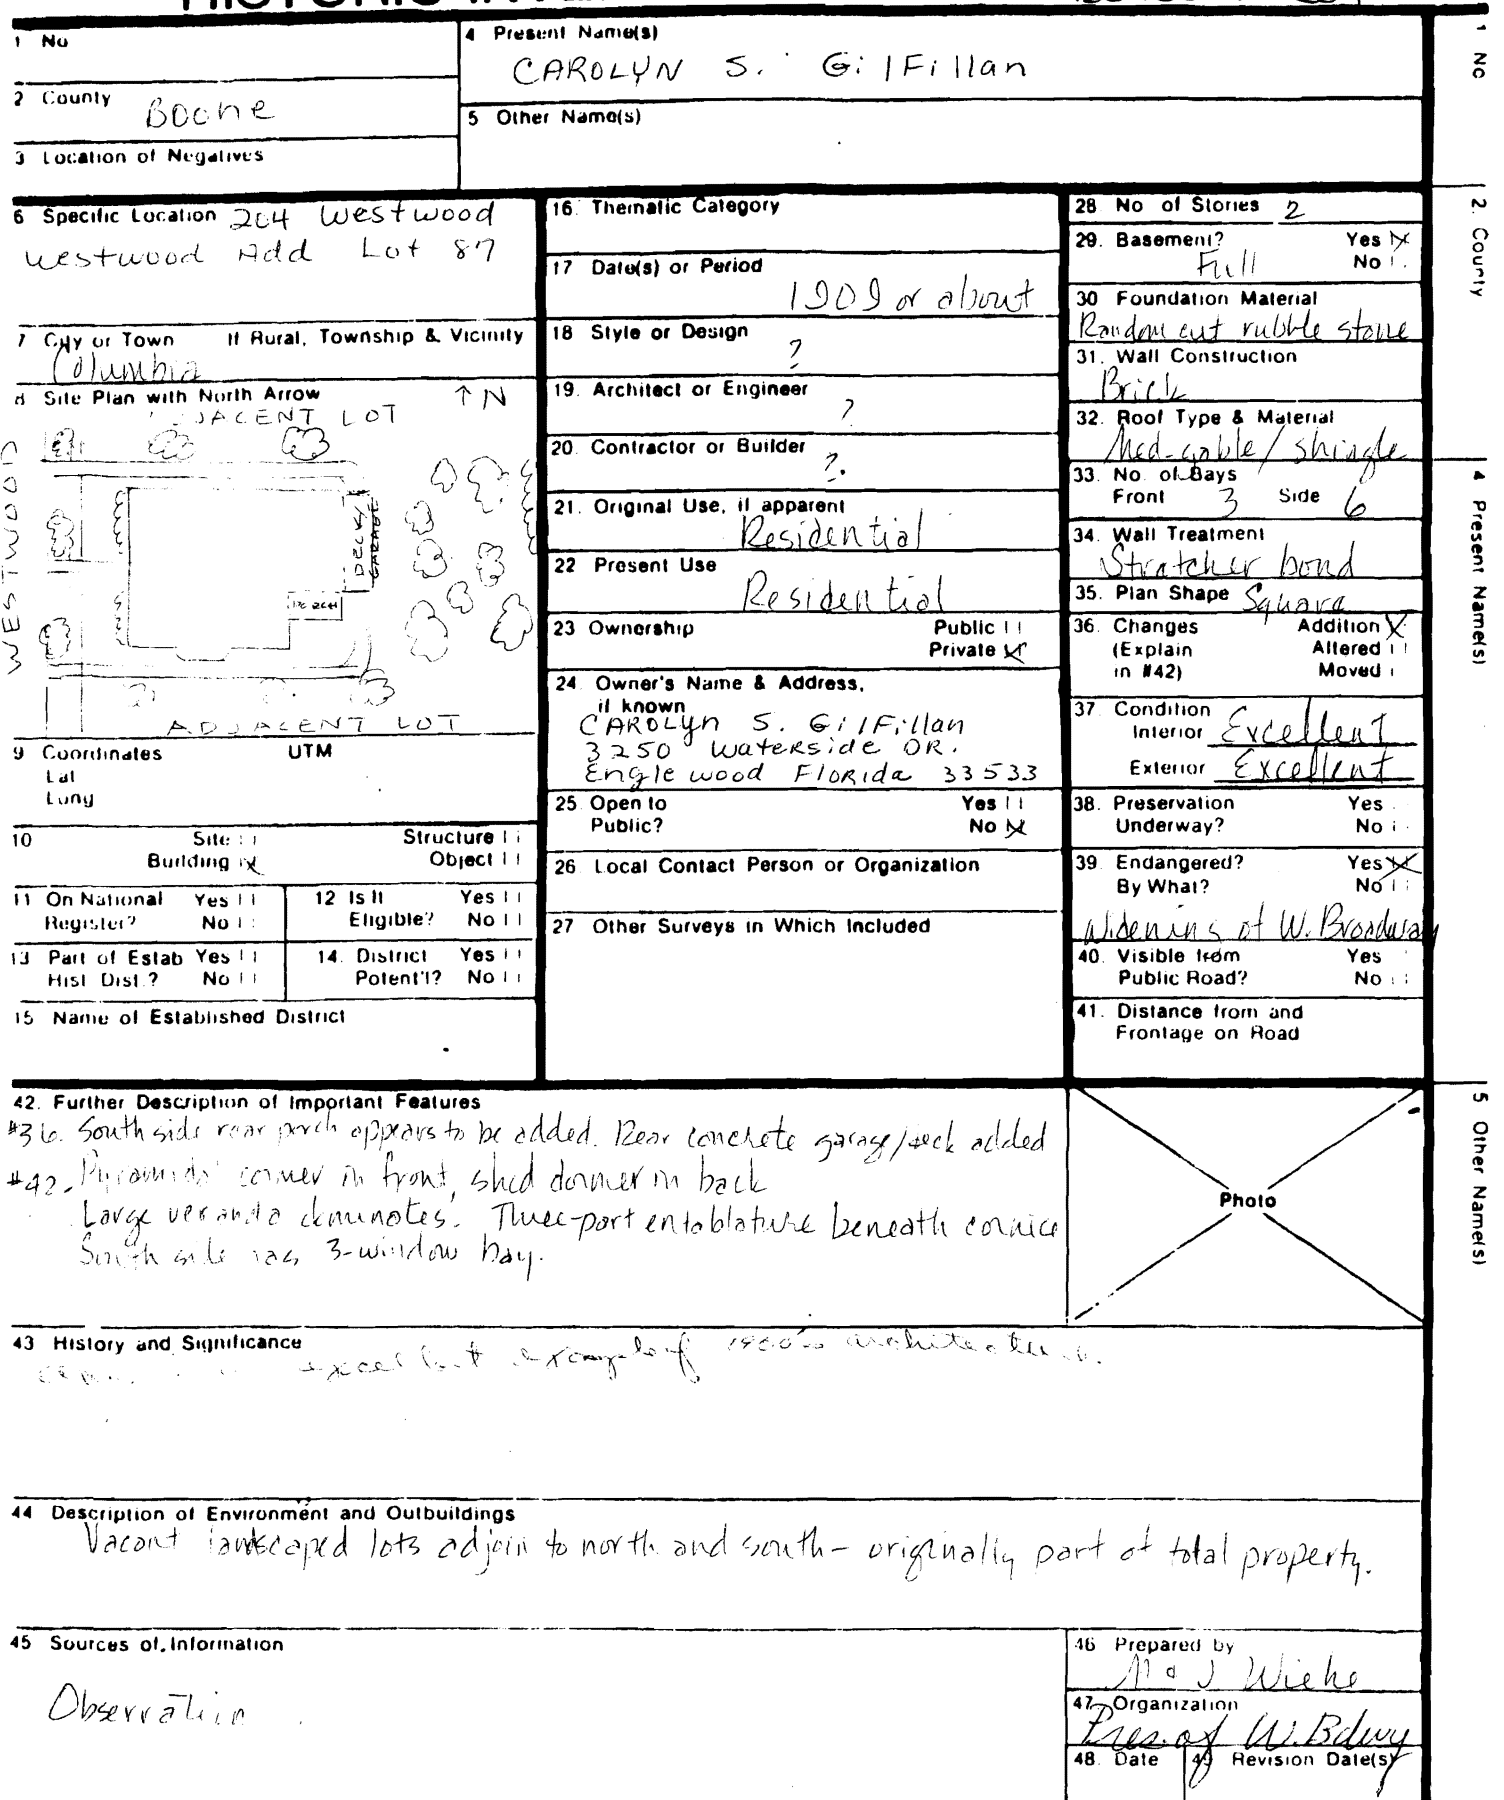 1 No
4 Present Name(s)
CAROLYN S. GilFillan
2 County Boone
5 Other Name(s)
3 Location of Negatives
6 Specific Location 204 Westwood
Westwood Add Lot 87
7 City or Town If Rural, Township & Vicinity
Columbia
8 Site Plan with North Arrow ↑ N
ADJACENT LOT
WESTWOOD
DECK/
GARAGE
PORCH
ADJACENT LOT
9 Coordinates UTM
Lat
Long
10 Site Structure
Building Object
11 On National Yes
Register? No
12 Is It Yes
Eligible? No
13 Part of Estab Yes
Hist. Dist.? No
14. District Yes
Potent'l? No
15 Name of Established District
16. Thematic Category
17 Date(s) or Period
1909 or about
18 Style or Design
?
19. Architect or Engineer
?
20. Contractor or Builder
?.
21. Original Use, if apparent
Residential
22 Present Use
Residential
23 Ownership Public
Private
24. Owner's Name & Address,
if known
CAROLYN S. GilFillan
3250 Waterside DR.
Englewood Florida 33533
25. Open to Yes
Public? No
26 Local Contact Person or Organization
27 Other Surveys in Which Included
28 No of Stories 2
29. Basement? Yes
Full No
30 Foundation Material
Random cut rubble stone
31. Wall Construction
Brick
32. Roof Type & Material
Med-gable/shingle
33. No. of Bays
Front 3 Side 6
34. Wall Treatment
Stratcher bond
35. Plan Shape Square
36. Changes Addition
(Explain Altered
in #42) Moved
37. Condition
Interior Excellent
Exterior Excellent
38. Preservation Yes
Underway? No
39. Endangered? Yes
By What? No
Widening of W. Broadway
40. Visible from Yes
Public Road? No
41. Distance from and
Frontage on Road
1 No
2. County
4 Present Name(s)
5 Other Name(s)
42. Further Description of Important Features
#36. South side rear porch appears to be added. Rear concrete garage/deck added
#42. in front, shed dormer in back
Large veranda dominates. Three-part entablature beneath cornice
South side has 3-window bay.
Photo
43 History and Significance
excellent example of 1900's architecture.
44 Description of Environment and Outbuildings
Vacant landscaped lots adjoin to north and south - originally part of total property.
45 Sources of Information
Observation
46 Prepared by
Wiehe
47 Organization
Pres. of W. Bdwy
48. Date
49 Revision Date(s)